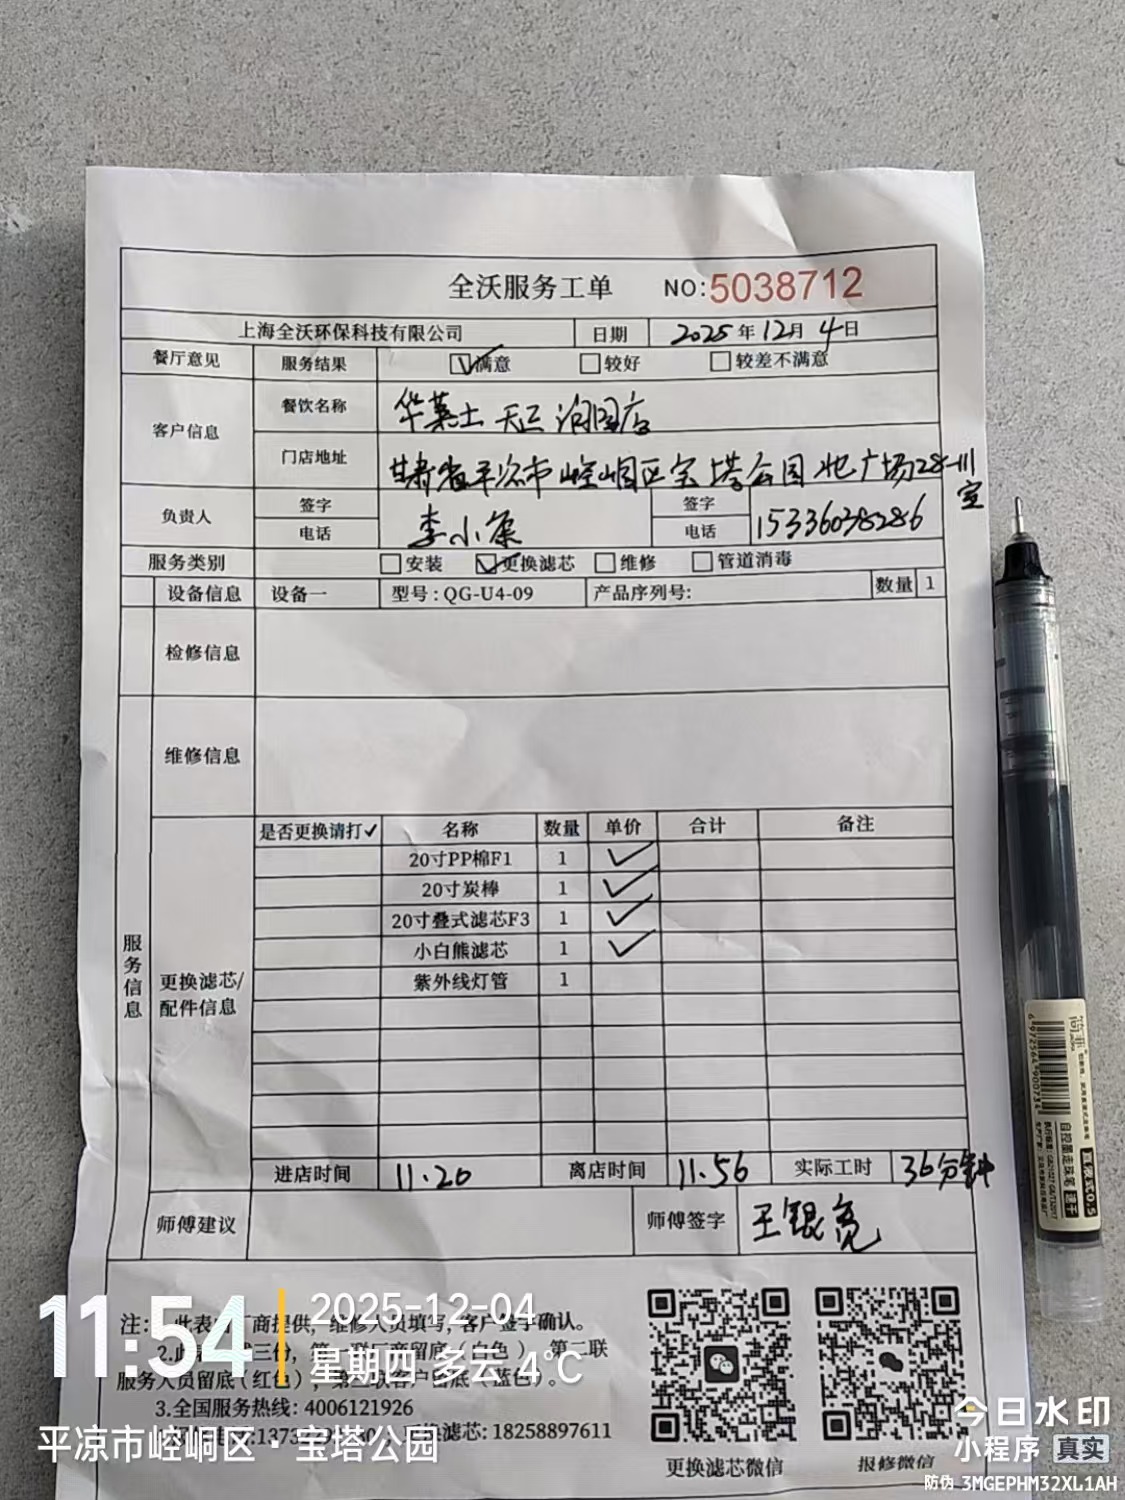 全沃服务工单 NO:5038712
上海全沃环保科技有限公司 日期 2025年12月4日
餐厅意见 服务结果 满意 较好 较差不满意
客户信息 餐饮名称 华莱士天正润园店
门店地址 甘肃省平凉市崆峒区宝塔公园北广场28-111室
负责人 签字 李小 签字
电话 电话 15336038286
服务类别 安装 更换滤芯 维修 管道消毒
设备信息 设备一 型号:QG-U4-09 产品序列号: 数量 1
检修信息
维修信息
服务信息
更换滤芯/配件信息
是否更换请打✓ 名称 数量 单价 合计 备注
20寸PP棉F1 1 ✓
20寸炭棒 1 ✓
20寸叠式滤芯F3 1 ✓
小白熊滤芯 1 ✓
紫外线灯管 1
进店时间 11.20 离店时间 11.56 实际工时 36分钟
师傅建议 师傅签字 王银亮
注: 此表 商提供, 维修人员填写, 客户签字确认。
2.此 三份, 第一联厂商留底(白色), 第二联
服务人员留底(红色), 第三联客户留底(蓝色)。
3.全国服务热线: 4006121926
更换滤芯: 18258897611
更换滤芯微信 报修微信
11:54
2025-12-04
星期四 多云 4℃
平凉市崆峒区·宝塔公园
今日水印
小程序 真实
防伪 3MGEPHM32XL1AH
6972564900734
自控墨走珠笔 速干
直液式0.5